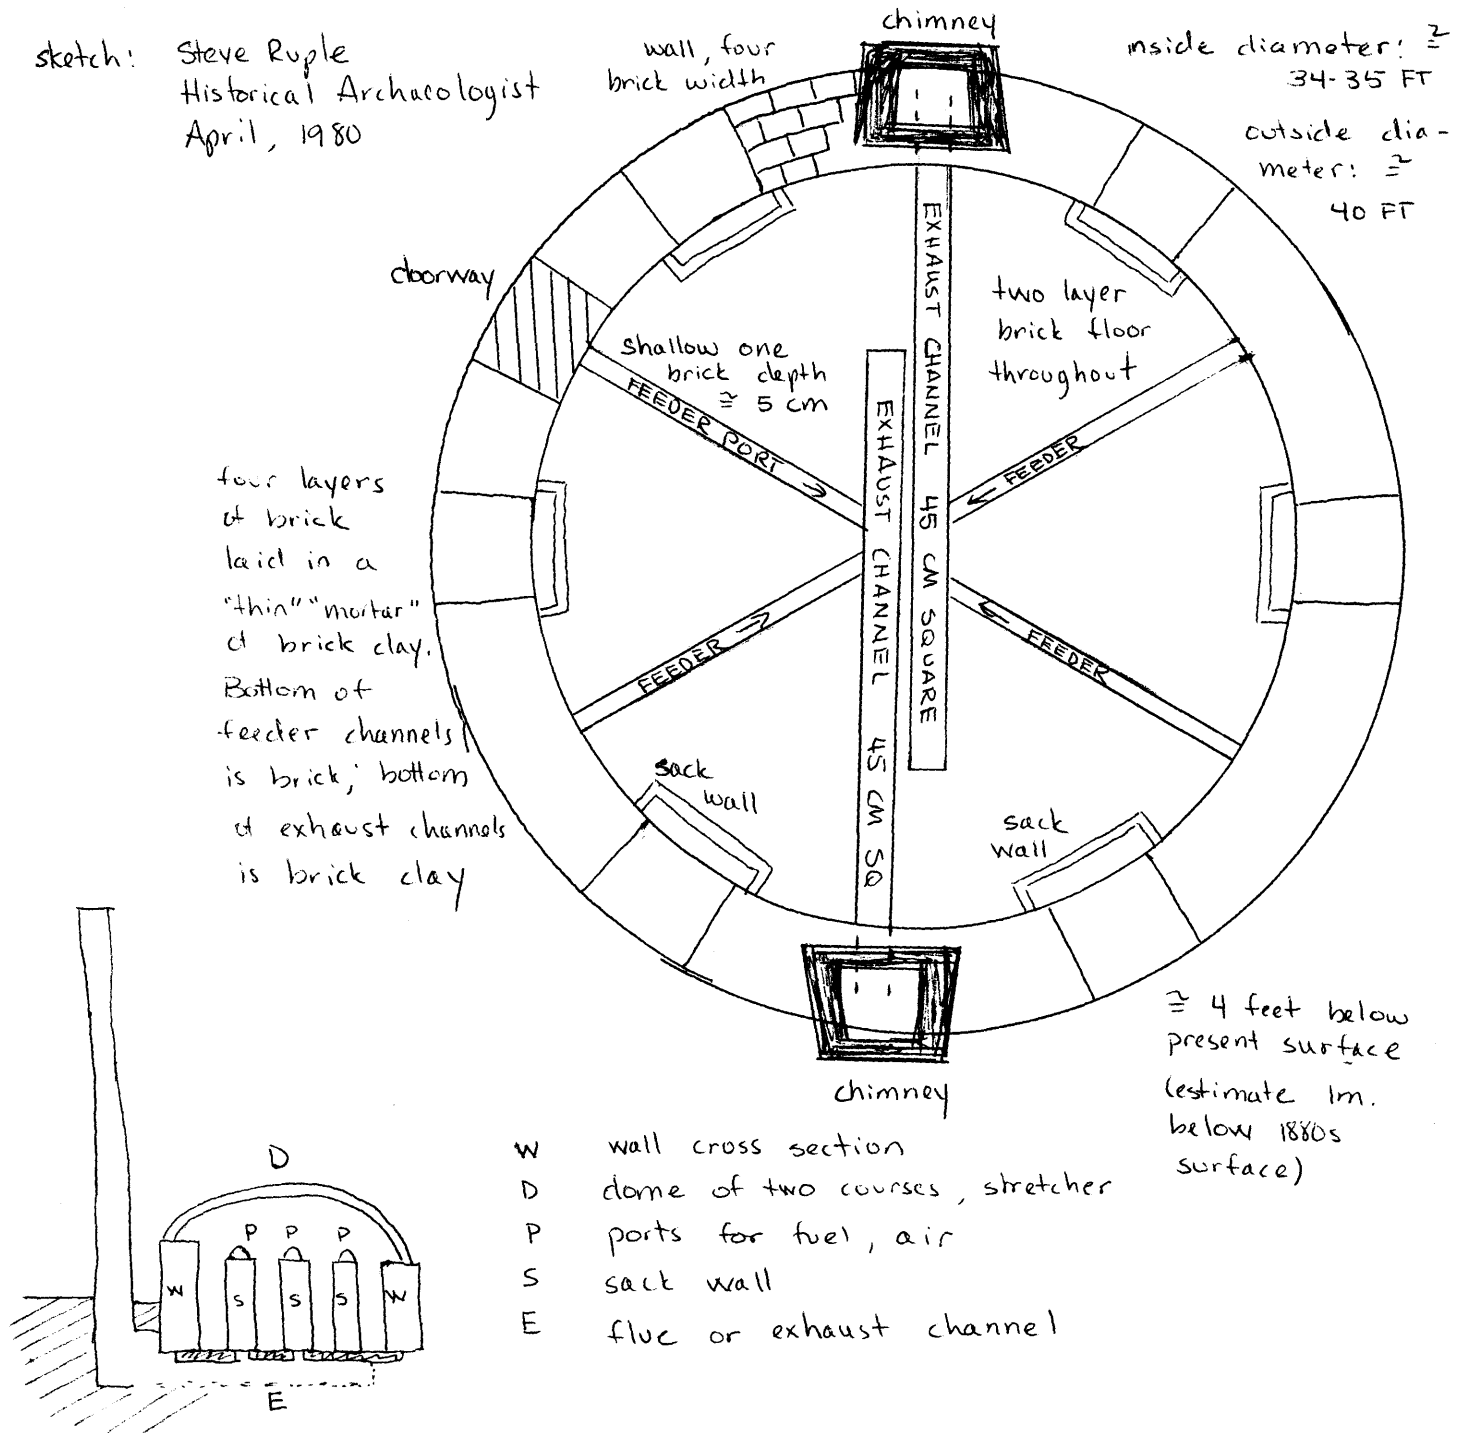 sketch: Steve Ruple
Historical Archaeologist
April, 1980
wall, four
brick width
chimney
inside diameter: ≅
34-35 FT
outside dia-
meter: ≅
40 FT
doorway
EXHAUST CHANNEL 45 CM SQUARE
two layer
brick floor
throughout
shallow one
brick depth
≅ 5 cm
FEEDER PORT →
← FEEDER
EXHAUST CHANNEL 45 CM SQ
FEEDER →
← FEEDER
four layers
of brick
laid in a
"thin" "mortar"
of brick clay.
Bottom of
feeder channels
is brick; bottom
of exhaust channels
is brick clay
sack
wall
sack
wall
chimney
≅ 4 feet below
present surface
(estimate 1m.
below 1880s
surface)
W wall cross section
D dome of two courses, stretcher
P ports for fuel, air
S sack wall
E flue or exhaust channel
D
P P P
W S S S W
E